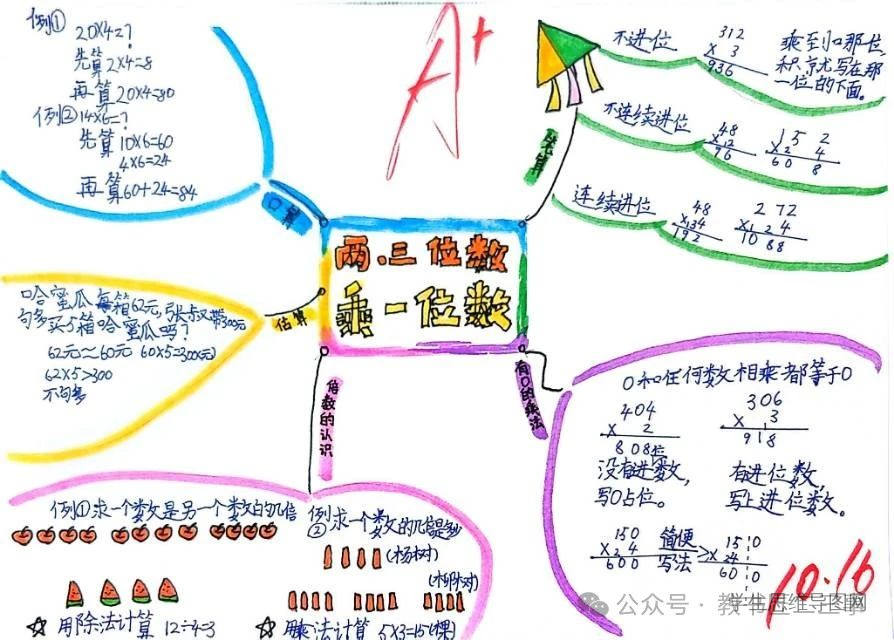 例①
20×4=?
先算2×4=8
再算20×4=80
例②14×6=?
先算10×6=60
4×6=24
再算60+24=84
口算
A+
笔算
不进位
312
× 3
936
乘到和那位,
积京尤写在那
一位的下面。
不连续进位
48
×12
96
152
×2 4
608
连续进位
48
×34
192
272
×124
1088
两、三位数
乘一位数
估算
哈蜜瓜每箱62元,张叔叔带300元
句多买5箱哈蜜瓜吗?
62元≈60元 60×5=300(元)
62×5>300
不句多
倍数的认识
例①求一个数是另一个数的几倍
用除法计算 12÷4=3
例②求一个数的几倍是多少
(杨树)
(柳树)
用乘法计算 5×3=15(棵)
有0的乘法
0和任何数相乘都等于0
404
× 2
808
没有进数,
写0占位。
306
× 3
918
有进位数,
写上进位数。
150
×2 4
600
简便
写法
150
×24
600
10.16
公众号·教
学生思维导图网